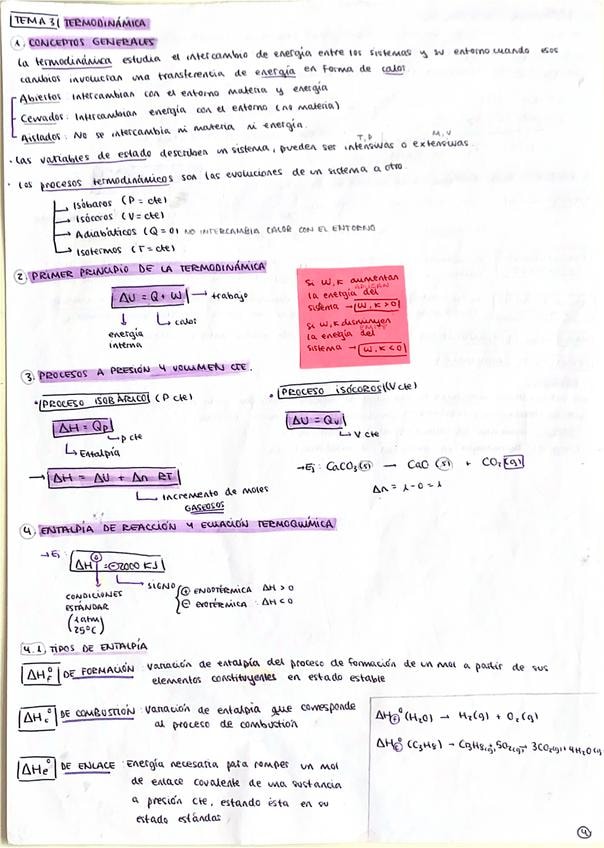 TEMA 3 | TERMODINÁMICA
1. CONCEPTOS GENERALES
La termodinámica estudia el intercambio de energía entre los sistemas y su entorno cuando esos
cambios involucran una transferencia de energía en forma de calor.
Abiertos Intercambian con el entorno materia y energía
Cerrados: Intercambian energía con el entorno (no materia)
Aislados: No se intercambia ni materia ni energía.
T, P M, V
· Las variables de estado describen un sistema, pueden ser intensivas o extensivas.
· Los procesos termodinámicos son las evoluciones de un sistema a otro.
→ Isóbaros (P = cte)
→ Isócoros (V = cte)
→ Adiabáticos (Q = 0) NO INTERCAMBIA CALOR CON EL ENTORNO
→ Isotermos (T = cte)
2. PRIMER PRINCIPIO DE LA TERMODINÁMICA
ΔU = Q + W → trabajo
calor
energía
interna
Si W, K aumentan
la energía del
sistema → W, K > 0
Si W, K disminuyen
la energía del
sistema → W, K < 0
3. PROCESOS A PRESIÓN Y VOLUMEN CTE.
· PROCESO ISOBÁRICO (P cte)
ΔH = Qp
P cte
Entalpía
→ ΔH = ΔU + Δn RT
Incremento de moles
GASEOSOS
· PROCESO ISOCOROS (V cte)
ΔU = Qv
V cte
→ Ej: CaCO3 (s) → CaO (s) + CO2 (g)
Δn = 1 - 0 = 1
4. ENTALPÍA DE REACCIÓN Y ECUACIÓN TERMOQUÍMICA
→ Ej: ΔH° = -2000 KJ
SIGNO
+ ENDOTÉRMICA ΔH > 0
- EXOTÉRMICA : ΔH < 0
CONDICIONES
ESTÁNDAR
(1 atm
25°C)
4.1. TIPOS DE ENTALPÍA
ΔHf° DE FORMACIÓN: Variación de entalpía del proceso de formación de un mol a partir de sus
elementos constituyentes en estado estable
ΔHc° DE COMBUSTIÓN: Variación de entalpía que corresponde
al proceso de combustión
ΔHe° DE ENLACE: Energía necesaria para romper un mol
de enlace covalente de una sustancia
a presión cte, estando ésta en su
estado estándar
ΔHf° (H2O) → H2(g) + O2(g)
ΔHc° (C3H8) → C3H8(g) + 5O2(g) → 3CO2(g) + 4H2O(g)
4